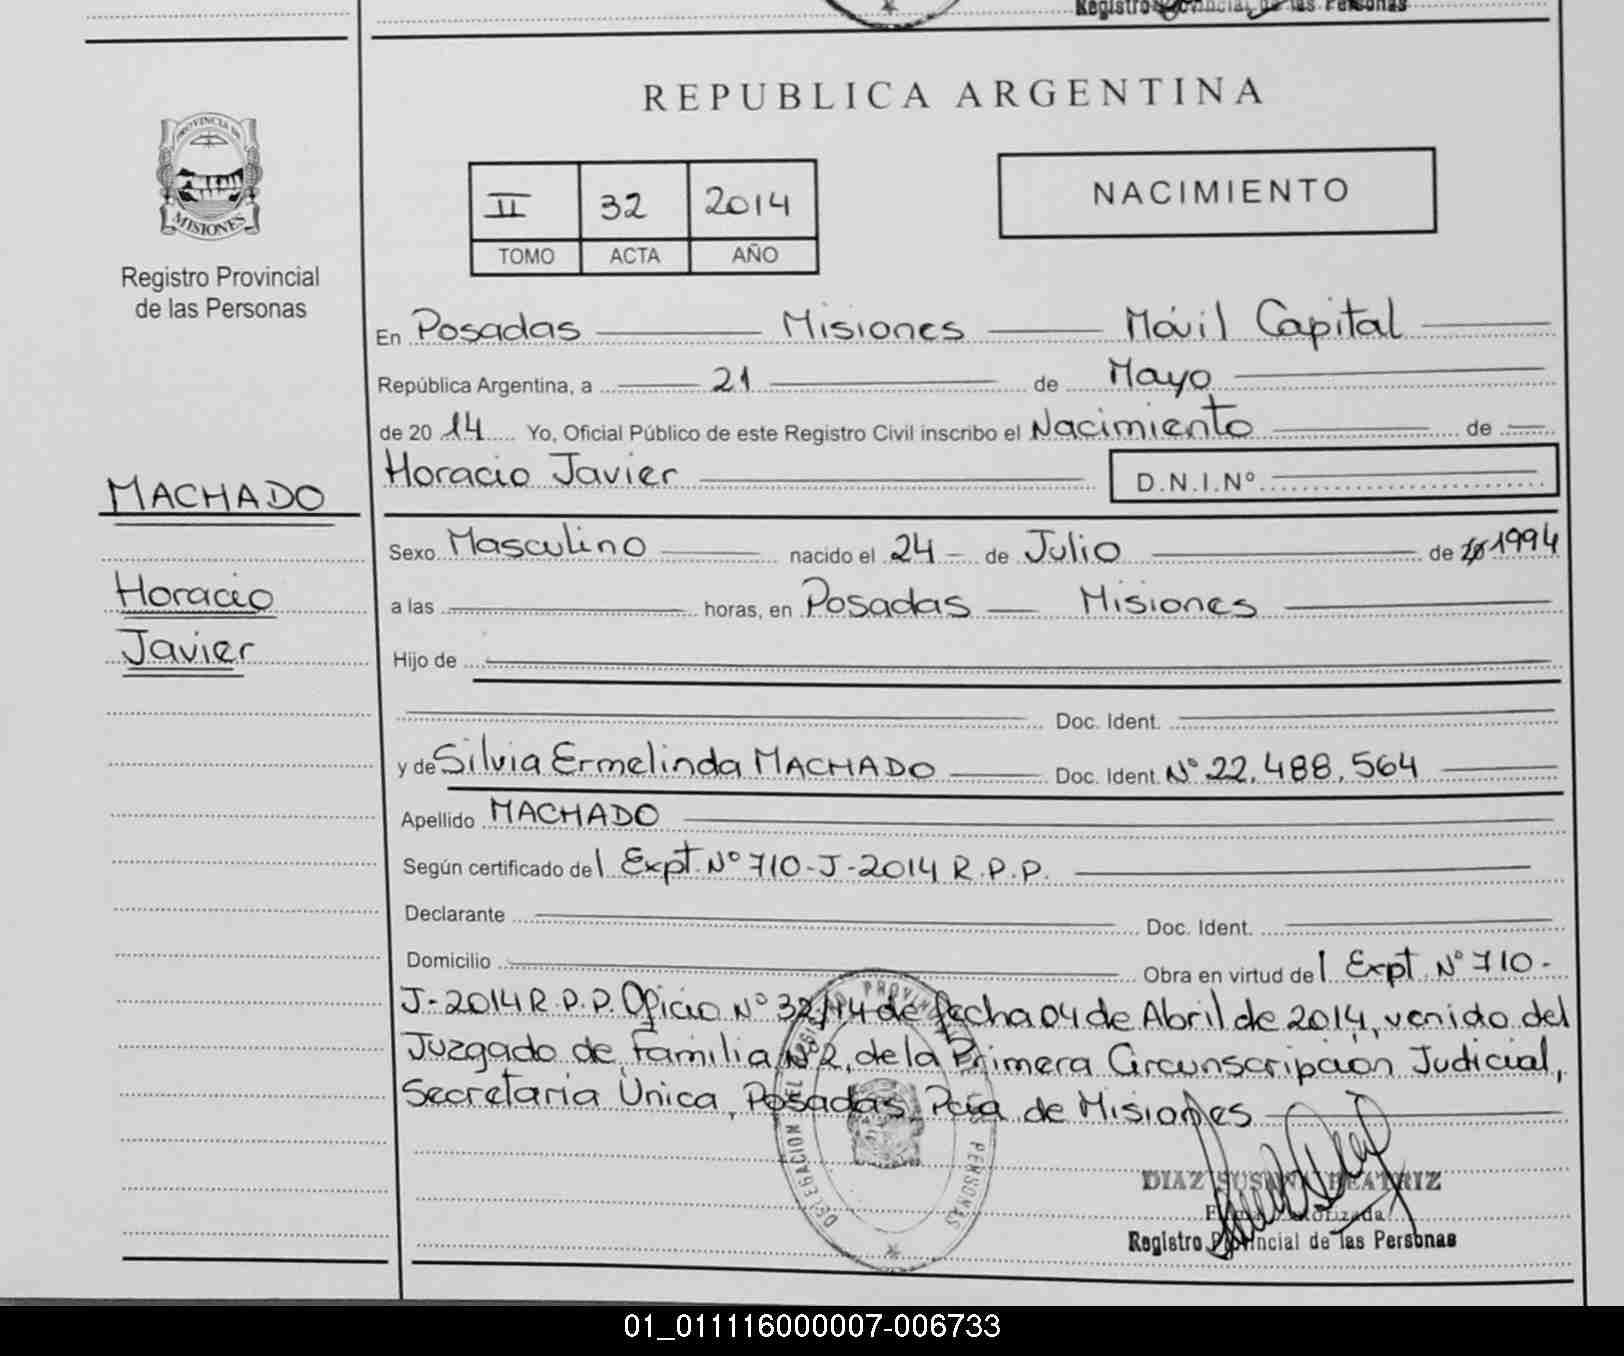 Registro Provincial de las Personas
REPUBLICA ARGENTINA
PROVINCIA DE
MISIONES
Registro Provincial
de las Personas
II 32 2014
TOMO ACTA AÑO
NACIMIENTO
En Posadas Misiones Móvil Capital
República Argentina, a 21 de Mayo
de 20 14 Yo, Oficial Público de este Registro Civil inscribo el Nacimiento de
Horacio Javier D.N.I.Nº
MACHADO
Horacio
Javier
Sexo Masculino nacido el 24 de Julio de 1994
a las horas, en Posadas Misiones
Hijo de
Doc. Ident.
y de Silvia Ermelinda MACHADO Doc. Ident. Nº 22.488.564
Apellido MACHADO
Según certificado del Expt. Nº 710-J-2014 R.P.P.
Declarante Doc. Ident.
Domicilio Obra en virtud del Expt Nº 710-
J-2014 R.P.P. Oficio Nº 32/14 de fecha 04 de Abril de 2014, venido del
Juzgado de Familia Nº2, de la Primera Circunscripcion Judicial,
Secretaria Única, Posadas, Pcia de Misiones
DELEGACION DEL REGISTRO PROVINCIAL DE LAS PERSONAS
DIAZ SUSANA BEATRIZ
Firma Autorizada
Registro Provincial de las Personas
01_011116000007-006733